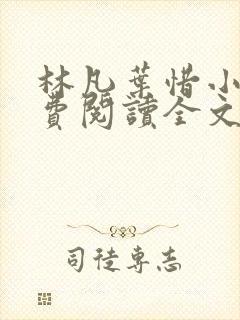 林凡葉惜小
費閱讀全文
司徒專志